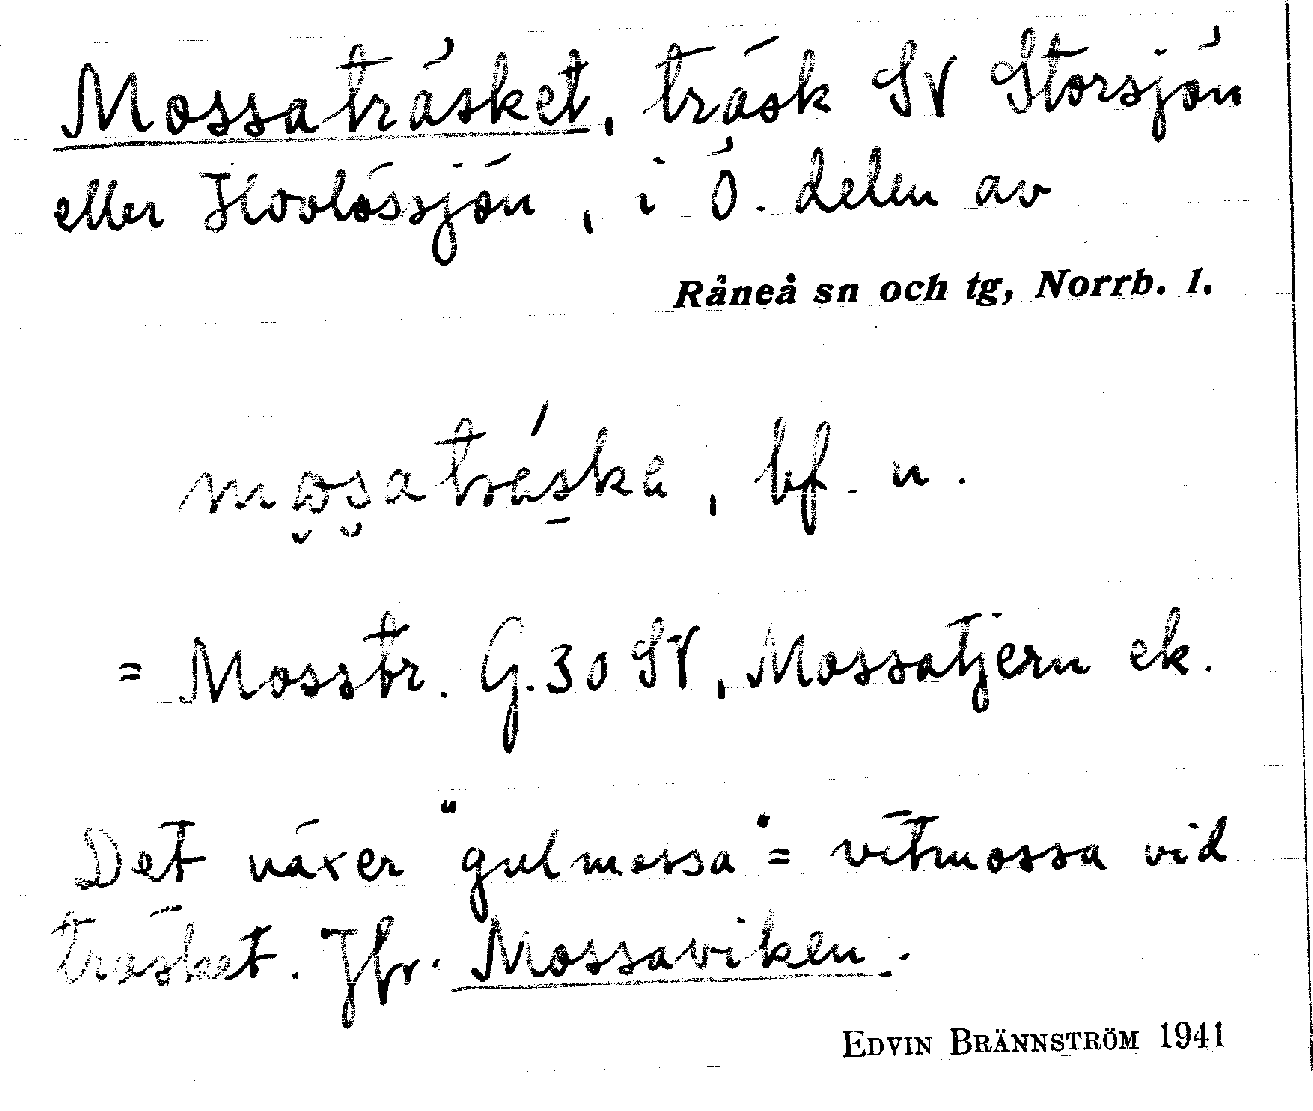 Mossaträsket, träsk SV Storsjön
eller Hovlössjön, i Ö. delen av
Råneå sn och tg, Norrb. l.
mosatráska, bf. n.
= Mosstr. G.30 SV, Mossatjern ek.
Det växer "gulmossa" = vitmossa vid
träsket. Jfr. Mossaviken.
EDVIN BRÄNNSTRÖM 1941